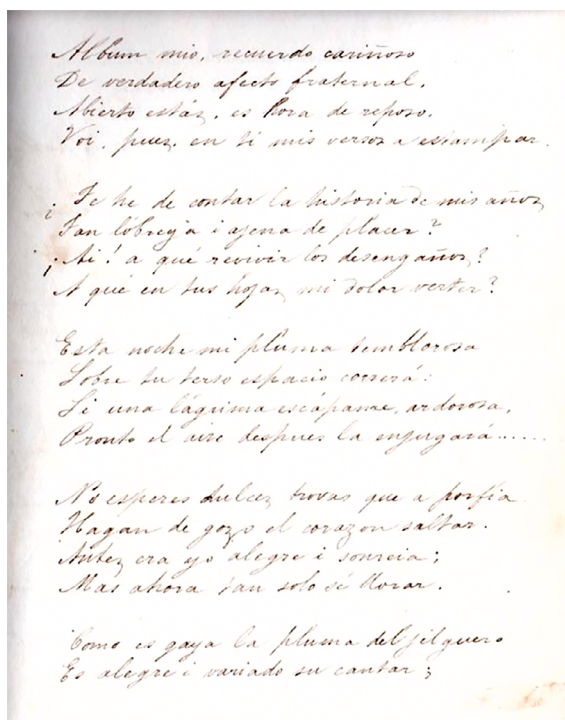 Album mio, recuerdo cariñoso
De verdadero afecto fraternal,
Abierto estáz, es hora de reposo.
Voi, puez, en tí mis versos a estampar.
¿Te he de contar la historia de mis añoz,
Tan lóbrega i ajena de placer?
¡Ai! a qué revivir los desengañoz?
A qué en tus hojaz mi dolor verter?
Esta noche mi pluma temblorosa
Sobre tu terso espacio correrá:
Si una lágrima escápame, ardorosa,
Pronto el aire despues la enjugará......
No esperes dulcez trovas que a porfia
Hagan de gozo el corazon saltar.
Antez era yo alegre i sonreia;
Mas ahora tan solo sé llorar.
Como es gaya la pluma del jilguero
Es alegre i variado su cantar;